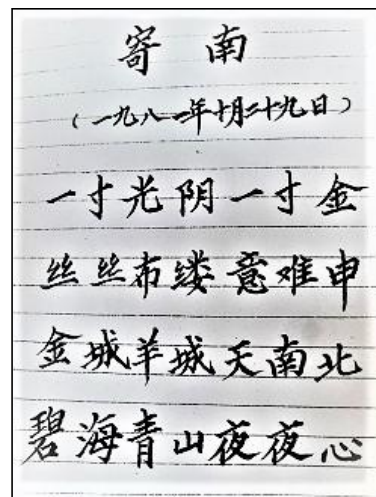 寄南
(一九八一年十月二十九日)
一寸光阴一寸金
丝丝布缕意难申
金城羊城天南北
碧海青山夜夜心